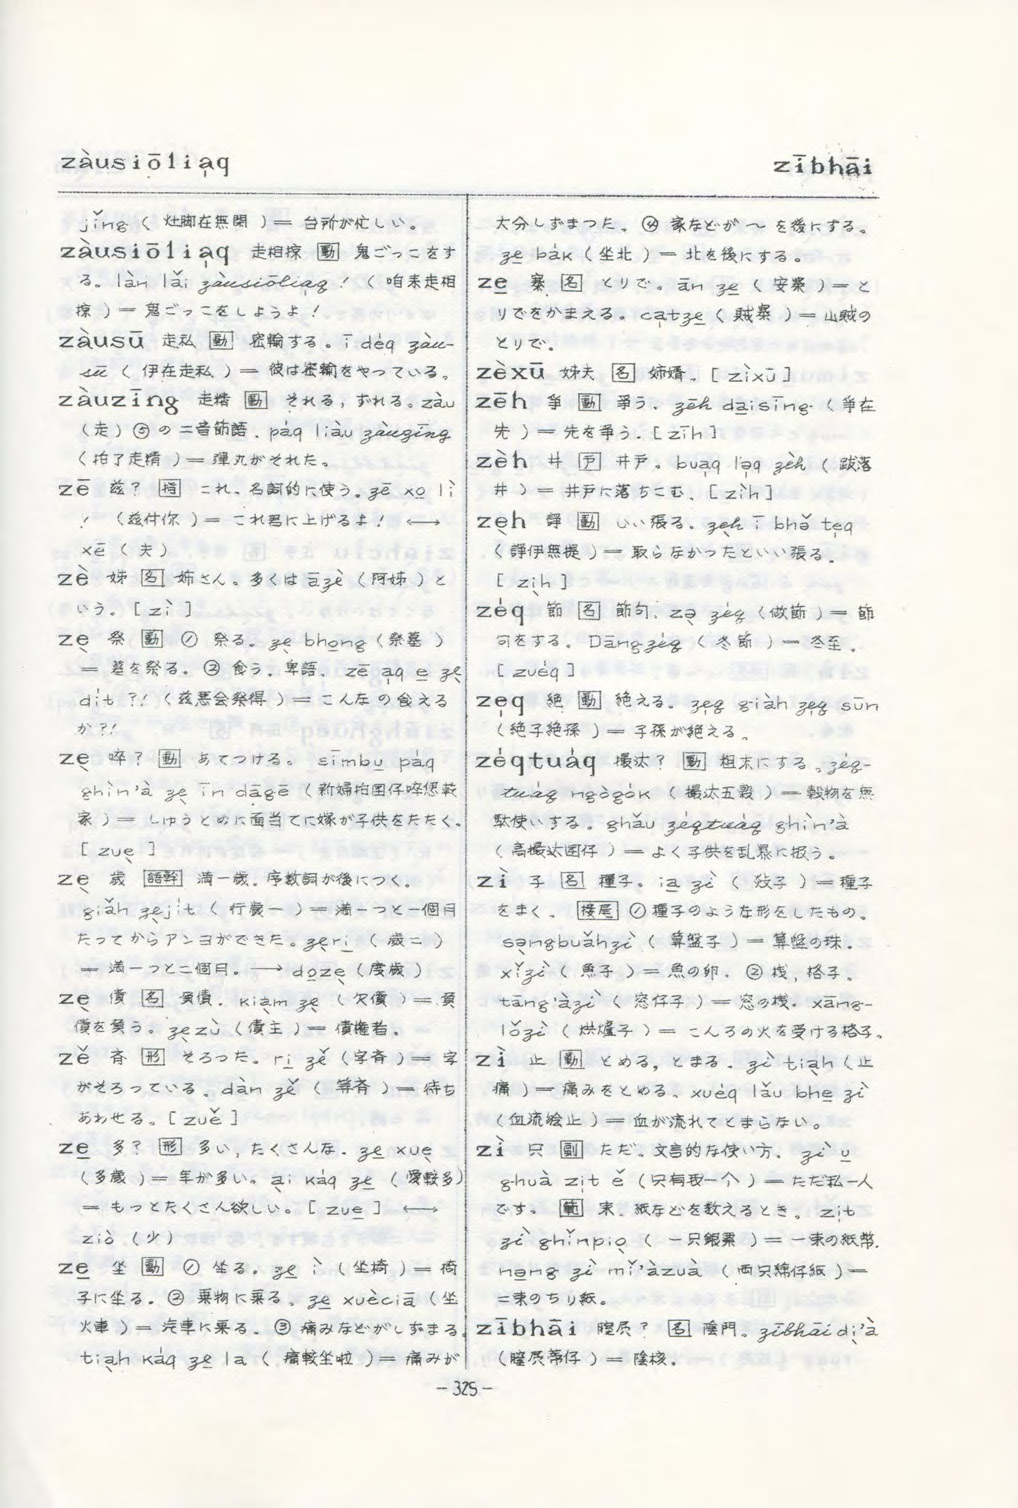 zàusiōliaq
zībhāi
jǐng ( 灶脚在無閑 ) = 台所が忙しい。
zàusiōliaq 走相掠 動 鬼ごっこをす
る。làn lǎi zàusiōliaq ! ( 咱来走相
掠 ) = 鬼ごっこをしようよ!
zàusū 走私 動 密輸する。ī déq zàu-
sū ( 伊在走私 ) = 彼は密輸をやっている。
zàuzīng 走精 動 それる, ずれる。zàu
(走) ⑤ の二音節語. páq liàu zàuzīng
(拍了走精 ) = 弾丸がそれた。
zē 玆? 指 これ, 名詞的に使う。zē xo lì
! (玆付你 ) = これ君に上げるよ! ←→
xē (夫)
zè 姊 名 姉さん。多くは āzè (阿姊 ) と
いう. [ zì ]
zẹ 祭 動 ① 祭る. zẹ bhong (祭墓 )
= 墓を祭る. ② 食う. 卑語. zē aq e zẹ
dit ?! (玆悪会祭得 ) = こんなの食える
か?!
zẹ 啐? 動 あてつける。sīmbu páq
ghin'à zẹ īn dāgē ( 新婦拍囝仔啐您乾
家 ) = しゅうとめに面当てに嫁が子供をたたく.
[ zuẹ ]
zẹ 歳 語幹 満一歳. 序数詞が後につく。
giǎh zẹjit ( 行歳一 ) = 満一つと一個月
たってからアンヨができた。zẹrī ( 歳二 )
= 満一つと二個月. → dozẹ (度歳 )
zẹ 債 名 負債. kiàm zẹ ( 欠債 ) = 負
債を負う。zẹzù ( 債主 ) = 債権者.
zě 斉 形 そろった。ri zě (字斉 ) = 字
がそろっている。dàn zě ( 等斉 ) = 待ち
あわせる。[ zuě ]
ze 多? 形 多い, たくさんな. ze xuẹ
(多歳 ) = 年が多い。ại káq ze ( 愛較多)
= もっとたくさん欲しい。[ zue ] ←→
ziò (少)
ze 坐 動 ① 坐る. ze ì ( 坐椅 ) = 椅
子に坐る. ② 乗物に乗る。ze xuèciā (坐
火車 ) = 汽車に乗る. ③ 痛みなどがしずまる。
tiạh káq ze la ( 痛較坐啦 ) = 痛みが
大分しずまった。④ 家などが〜を後にする。
ze bák (坐北 ) = 北を後にする。
ze 寨 名 とりで。ān ze ( 安寨 ) = と
りでをかまえる。catze ( 賊寨 ) = 山賊の
とりで.
zèxū 姊夫 名 姉婿。[ zìxū ]
zēh 争 動 争う. zēh daisīng (争在
先 ) = 先を争う. [ zīh ]
zèh 井 戸 井戸。buaq laq zèh, ( 跋落
井 ) = 井戸に落ちこむ. [ zìh ]
zẹh 諍 動 いい張る. zẹh ī bhě teq
(諍伊無提 ) = 取らなかったといい張る.
[ zịh ]
zéq 節 名 節句. zọ zéq (做節 ) = 節
句をする。Dāngzéq ( 冬節 ) = 冬至.
[ zuéq ]
zeq 絶 動 絶える. zeq giàh zeq sūn
(絶子絶孫 ) = 子孫が絶える。
zéqtuáq 撮汰? 動 粗末にする。zéq-
tuáq ngògók ( 撮汰五穀 ) = 穀物を無
駄使いする。ghǎu zéqtuáq ghin'à
( 高撮汰囝仔 ) = よく子供を乱暴に扱う。
zì 子 名 種子。ia zì ( 掖子 ) = 種子
をまく。接尾 ① 種子のような形をしたもの。
sạngbuǎhzì ( 算盤子 ) = 算盤の珠.
xǐzì ( 魚子 ) = 魚の卵. ② 桟, 格子.
tāng'àzì ( 窓仔子 ) = 窓の桟. xāng-
lǒzì ( 烘爐子 ) = こんろの火を受ける格子。
zì 止 動 とめる, とまる. zì tiạh (止
痛 ) = 痛みをとめる. xuéq lǎu bhe zì
(血流𣍐止 ) = 血が流れてとまらない。
zì 只 副 ただ. 文言的な使い方. zì u
ghuà zit ě (只有我一个 ) = ただ私一人
です。範 束. 紙などを数えるとき。zit
zì ghǐnpiọ ( 一只銀票 ) = 一束の紙幣.
nəng zì mǐ'àzuà ( 両只綿仔紙 ) =
二束のちり紙.
zībhāi 膣屄? 名 陰門。zībhāi dị'à
(膣屄蒂仔 ) = 陰核.
- 325 -